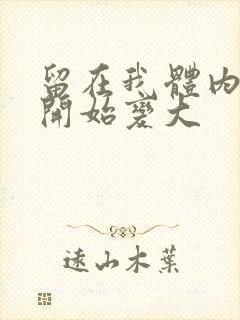 留在我體內
開始變大
遠山木葉